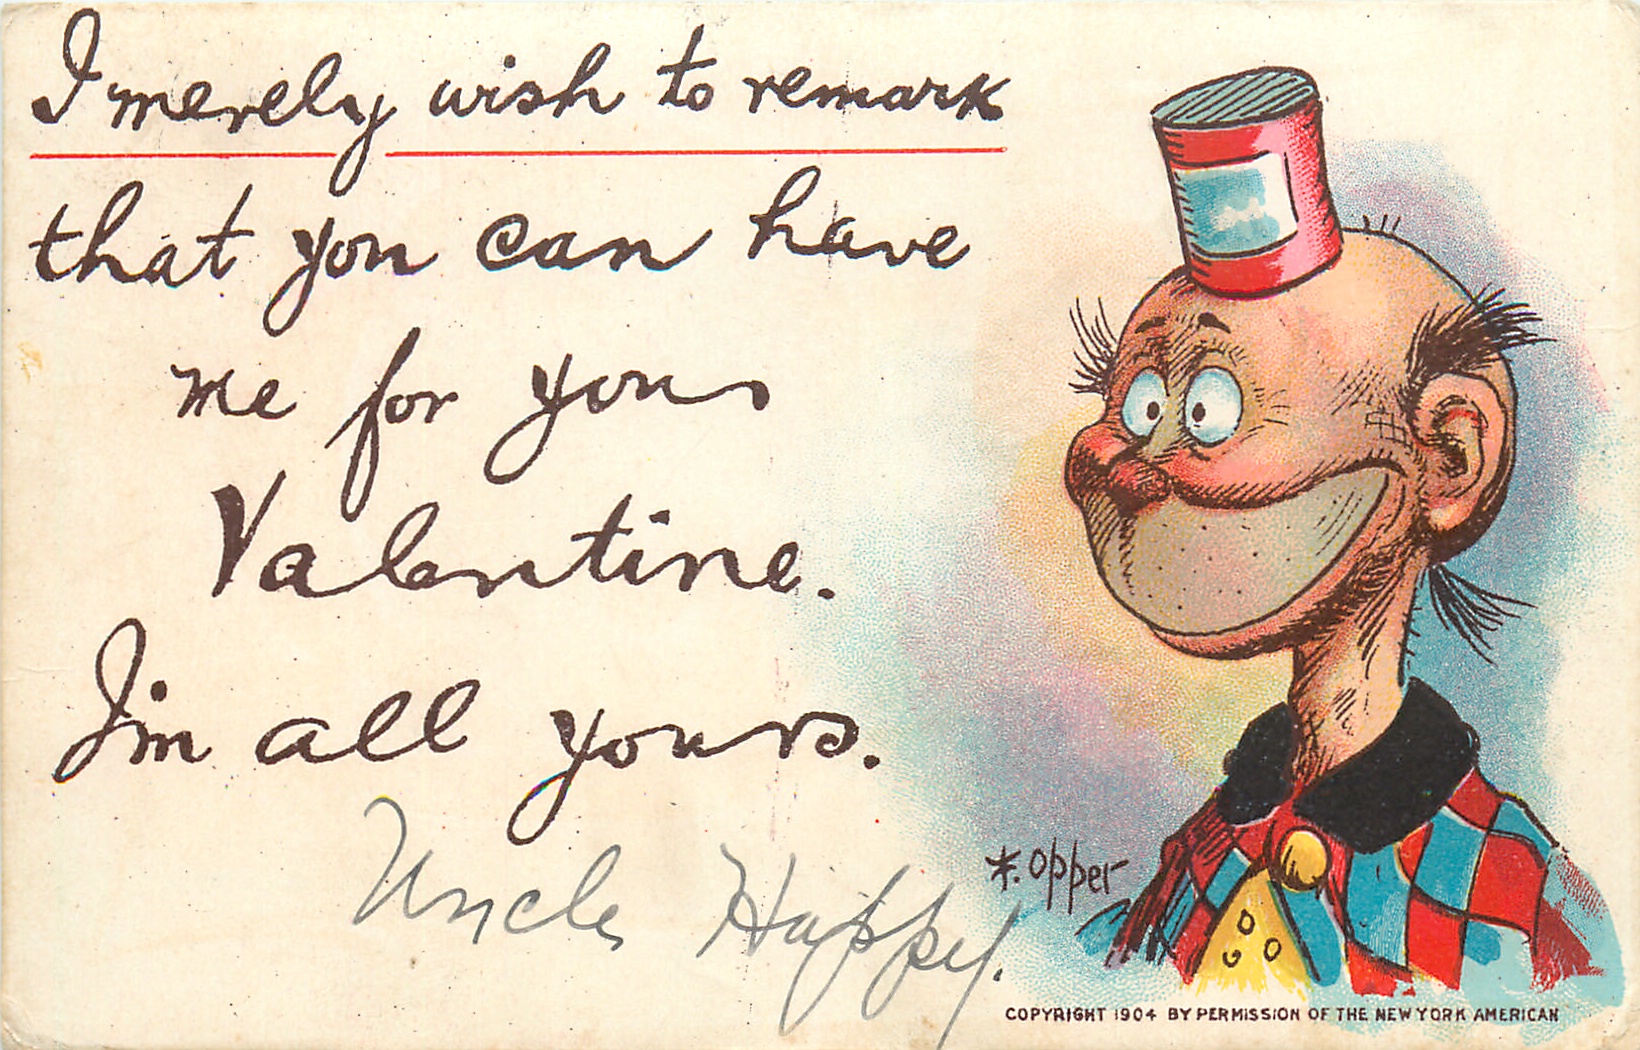 I merely wish to remark
that you can have
me for your
Valentine.
I'm all yours.
Uncle Happy.
F. Opper
COPYRIGHT 1904 BY PERMISSION OF THE NEW YORK AMERICAN